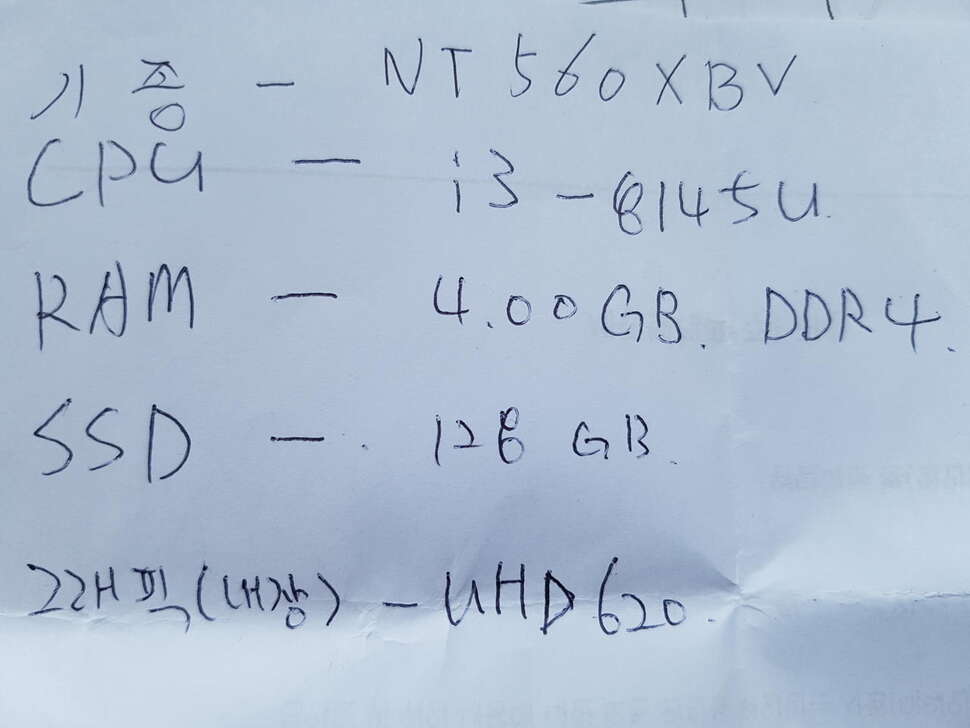 기종 - NT560XBV
CPU - i3-8145U
RAM - 4.00GB. DDR4.
SSD - 128 GB.
그래픽(내장) - UHD620.